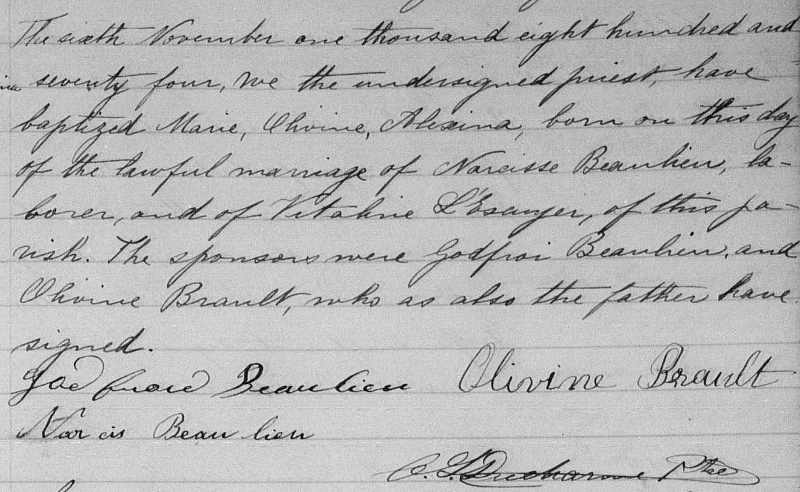 The sixth November one thousand eight hundred and
seventy four, we the undersigned priest, have
baptized Marie, Olivine, Alexina, born on this day
of the lawful marriage of Narcisse Beaulieu, la-
borer, and of Vitaline L'Esanger, of this pa-
rish. The sponsors were Godfroi Beaulieu, and
Olivine Brault, who as also the father have
signed.
Beaulieu Olivine Brault
Narcis Beaulieu
Ducharme Ptre